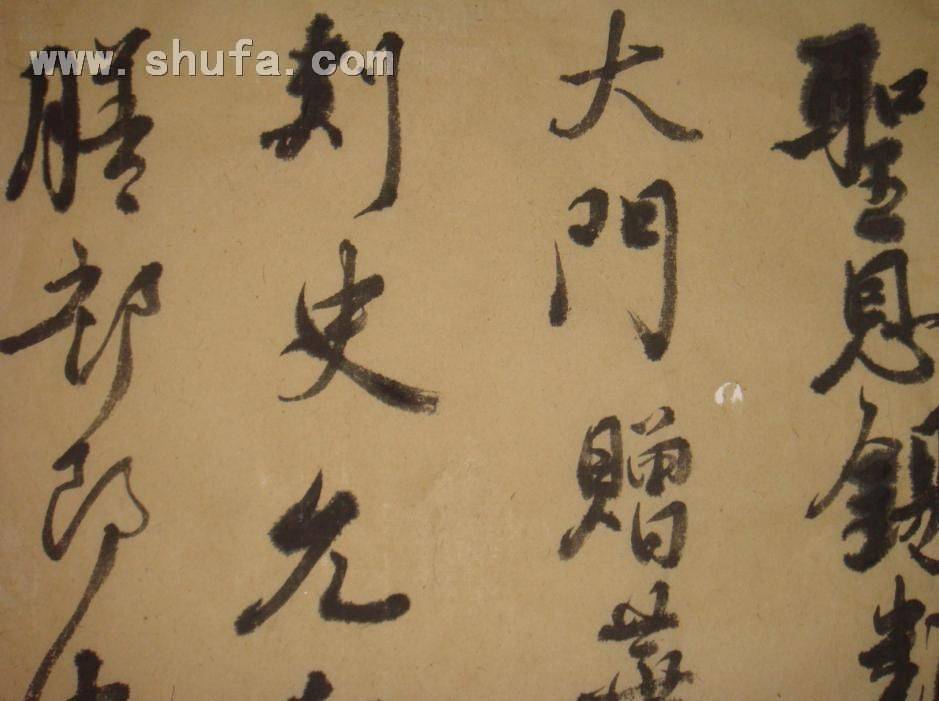 www.shufa.com
聖恩錫類
大門贈華
刺史允
膳部郎